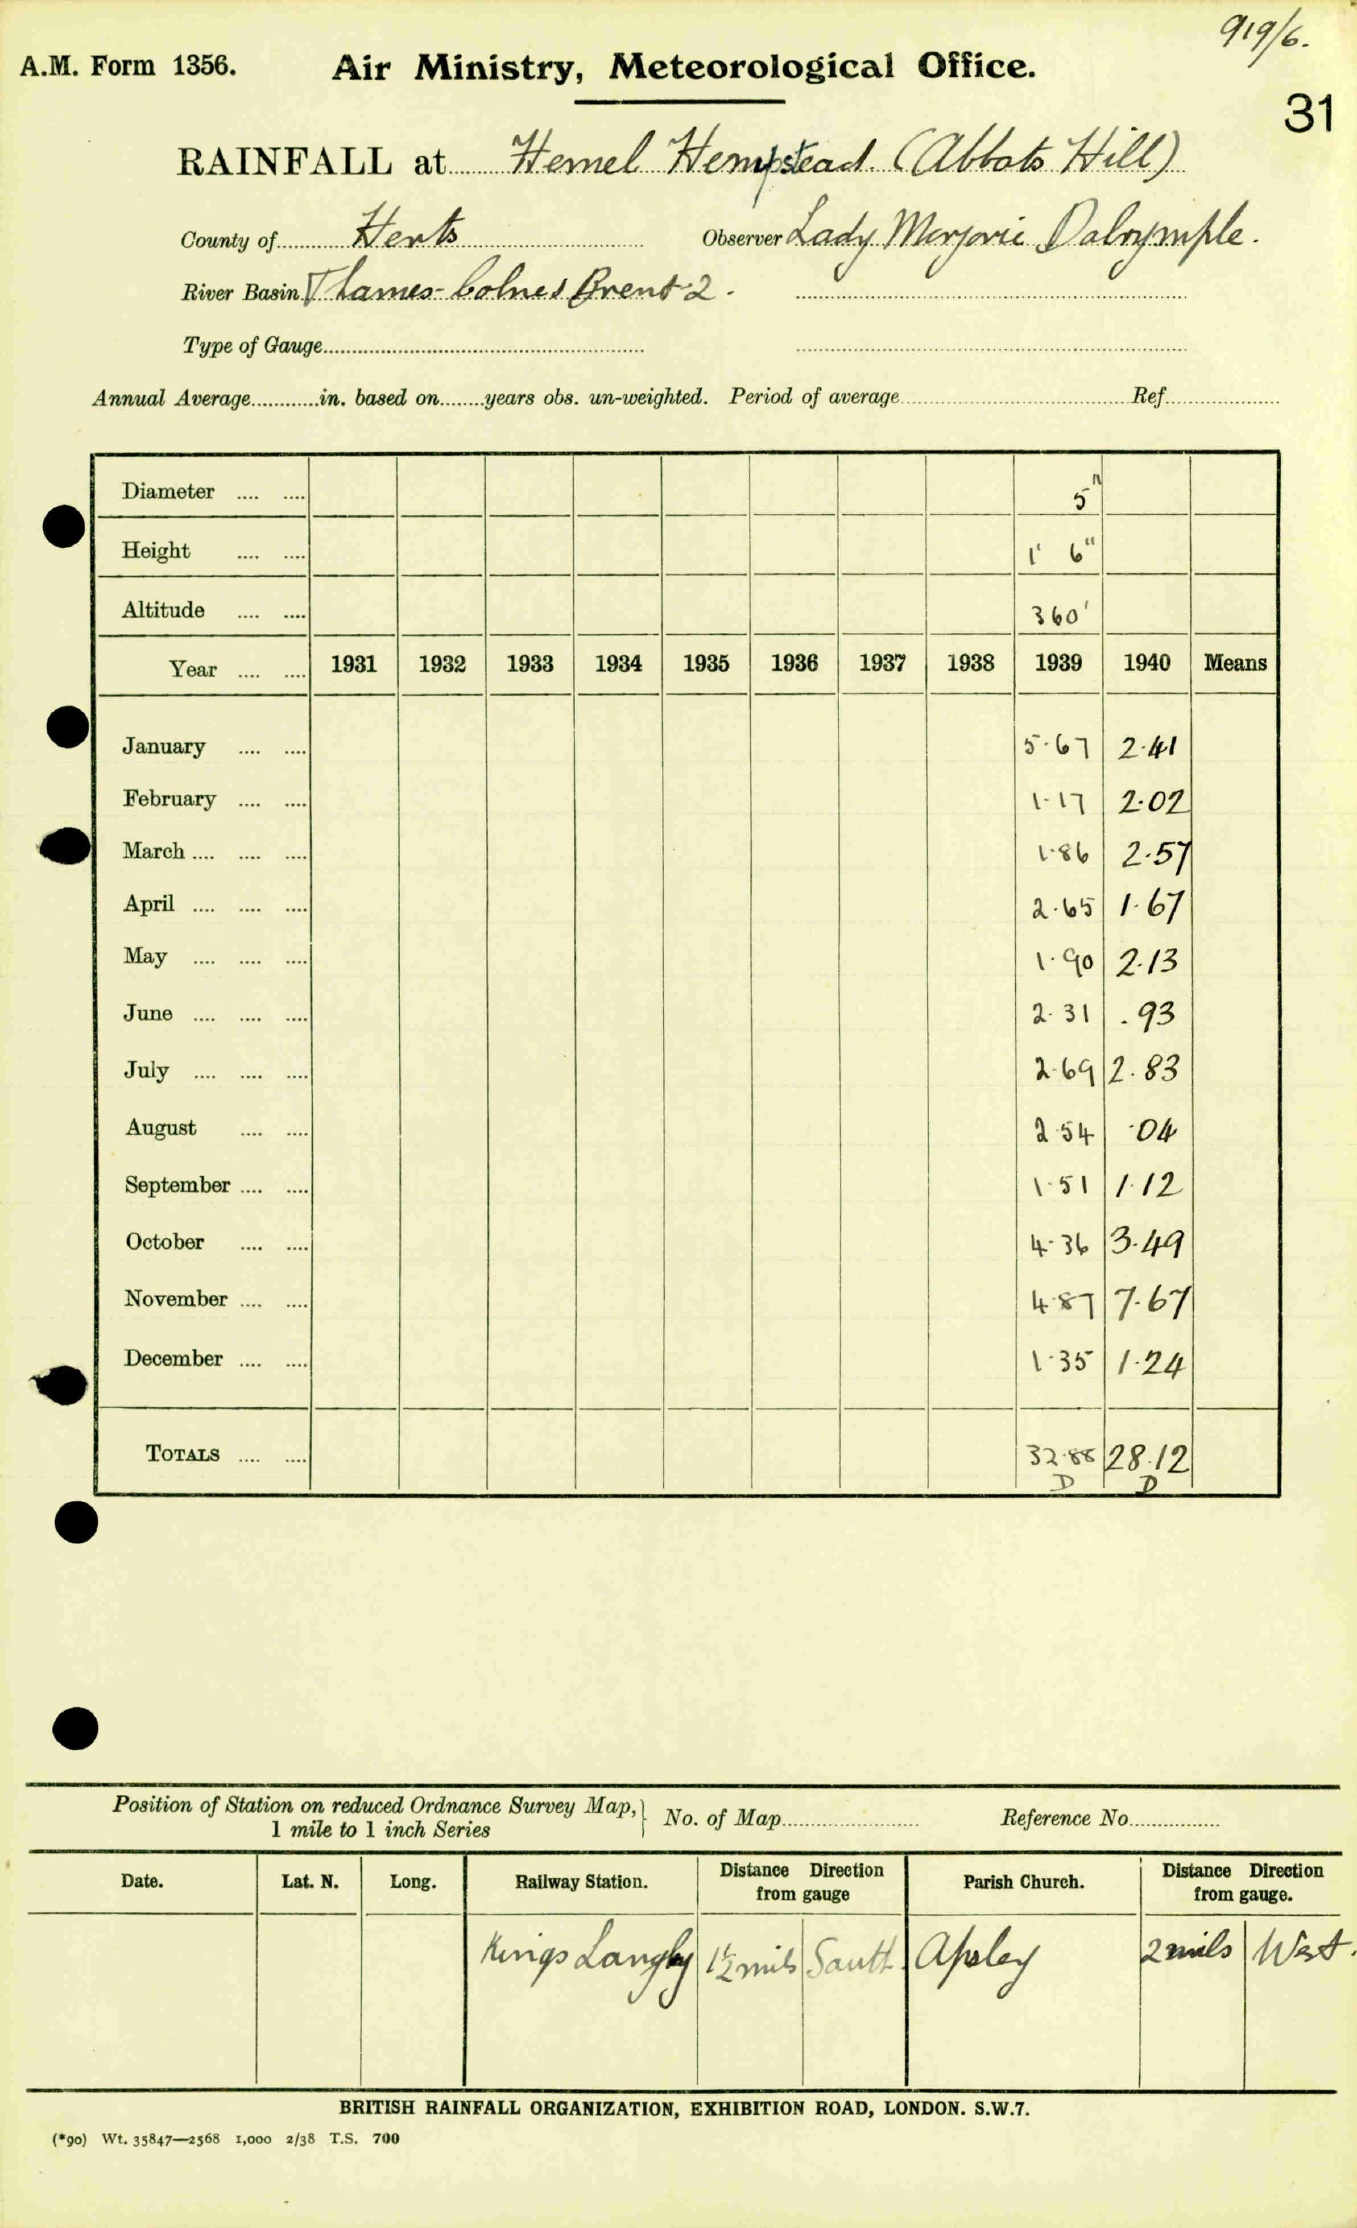 919/6.
A.M. Form 1356. Air Ministry, Meteorological Office.
31
RAINFALL at Hemel Hempstead. (Abbots Hill)
County of Herts Observer Lady Marjorie Dalrymple.
River Basin Thames- Colnes Brent 2.
Type of Gauge
Annual Average in. based on years obs. un-weighted. Period of average Ref
Diameter 5"
Height 1' 6"
Altitude 360'
Year 1931 1932 1933 1934 1935 1936 1937 1938 1939 1940 Means
January 5.67 2.41
February 1.17 2.02
March 1.86 2.57
April 2.65 1.67
May 1.90 2.13
June 2.31 .93
July 2.69 2.83
August 2.54 .04
September 1.51 1.12
October 4.36 3.49
November 4.87 7.67
December 1.35 1.24
TOTALS 32.88 28.12
D D
Position of Station on reduced Ordnance Survey Map, No. of Map Reference No
1 mile to 1 inch Series
Date. Lat. N. Long. Railway Station. Distance Direction from gauge Parish Church. Distance Direction from gauge.
Kings Langley 1½ mils South Apsley 2 mils West.
BRITISH RAINFALL ORGANIZATION, EXHIBITION ROAD, LONDON. S.W.7.
(*90) Wt. 35847—2568 1,000 2/38 T.S. 700